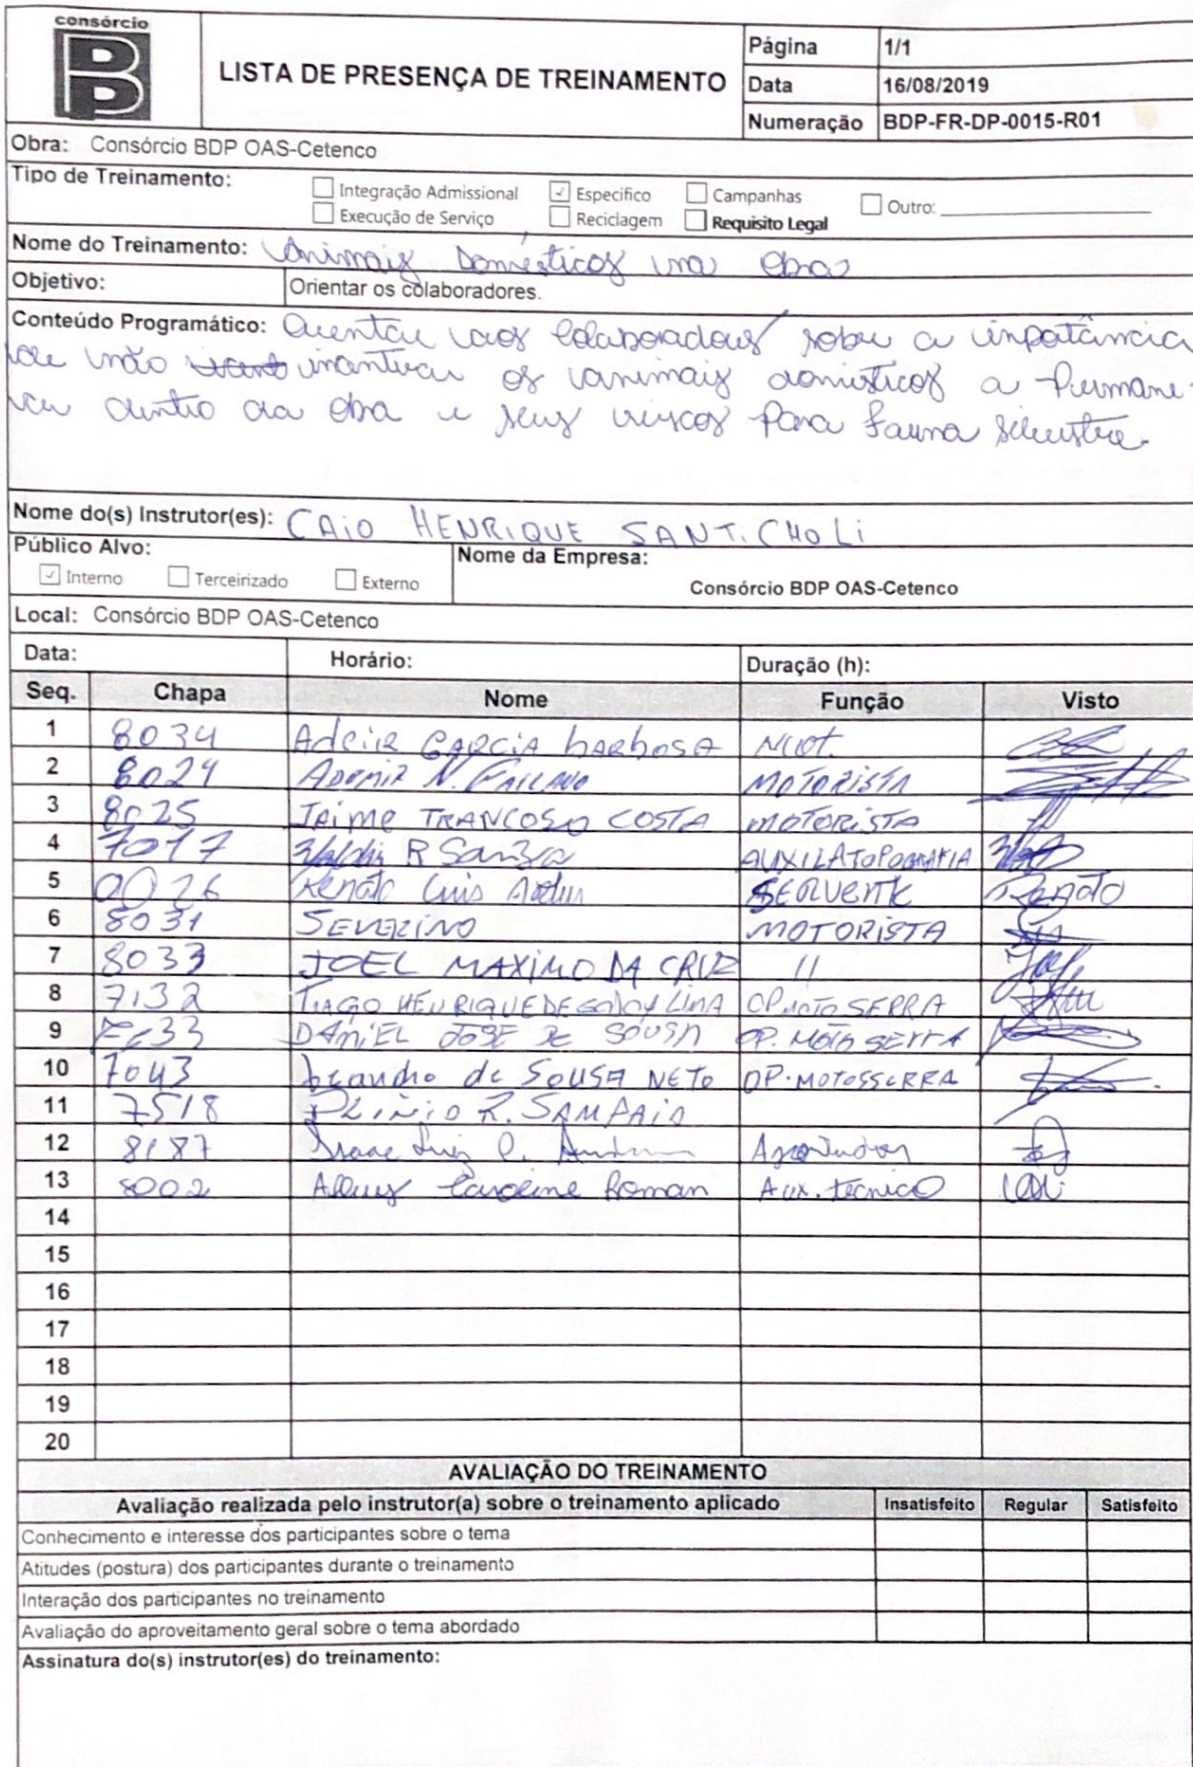 consórcio
BDP
LISTA DE PRESENÇA DE TREINAMENTO
Página 1/1
Data 16/08/2019
Numeração BDP-FR-DP-0015-R01
Obra: Consórcio BDP OAS-Cetenco
Tipo de Treinamento:
Integração Admissional Especifico Campanhas Outro:
Execução de Serviço Reciclagem Requisito Legal
Nome do Treinamento: Animais Domésticos na Obra
Objetivo: Orientar os colaboradores.
Conteúdo Programático: Orientar aos colaboradores sobre a impotância
de não incentivar os animais domésticos a Permane-
cer dentro da obra e seus riscos Para Fauna silvestre.
Nome do(s) Instrutor(es): CAIO HENRIQUE SANTICHOLI
Público Alvo: Nome da Empresa:
Interno Terceirizado Externo Consórcio BDP OAS-Cetenco
Local: Consórcio BDP OAS-Cetenco
Data: Horário: Duração (h):
Seq. Chapa Nome Função Visto
1 8034 Adcir GARCIA bARbOSA Mot.
2 8024 ADEMIR N. MOTORISTA
3 8025 JAIME TRANCOSO COSTA MOTORISTA
4 7017 R Souza AUXILATOPOGRAFIA
5 0026 Renato Luis SERVENTE Renato
6 8031 SEVERINO MOTORISTA
7 8033 JOEL MAXIMO DA CRUZ 11
8 7132 TIAGO HENRIQUE DE GODOY LIMA OP MOTO SERRA
9 DANIEL JOSE DE SOUSA OP. MOTO SERRA
10 7043 Leandro de SOUSA NETO OP. MOTOSSERRA
11 7518 PLINIO R. SAMPAIO
12 8187 Isaac Luiz Apontador
13 8002 Caroline Roman Aux. técnico
14
15
16
17
18
19
20
AVALIAÇÃO DO TREINAMENTO
Avaliação realizada pelo instrutor(a) sobre o treinamento aplicado Insatisfeito Regular Satisfeito
Conhecimento e interesse dos participantes sobre o tema
Atitudes (postura) dos participantes durante o treinamento
Interação dos participantes no treinamento
Avaliação do aproveitamento geral sobre o tema abordado
Assinatura do(s) instrutor(es) do treinamento: